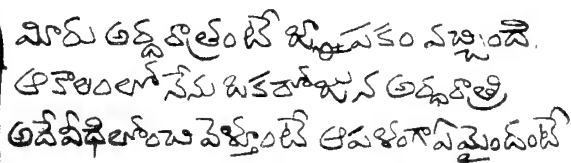 మీరు అర్ధరాత్రంటే జ్ఞాపకం వచ్చింది.
ఆకాలంలో నేను ఒకరోజున అర్ధరాత్రి
అదేవీధిలోంచి వెళ్తూంటే ఆపళంగా ఏమైందంటే